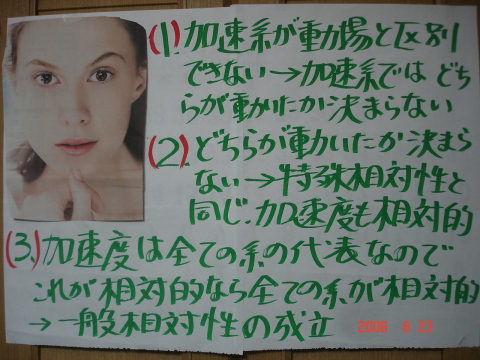 (1).加速系が動場と区別
できない→加速系では どち
らが動いたか決まらない
(2).どちらが動いたか決まら
ない→特殊相対性と
同じ.加速度も相対的
(3).加速度は全ての系の代表なので
これが相対的なら全ての系が相対的
→一般相対性の成立
2008 3 23